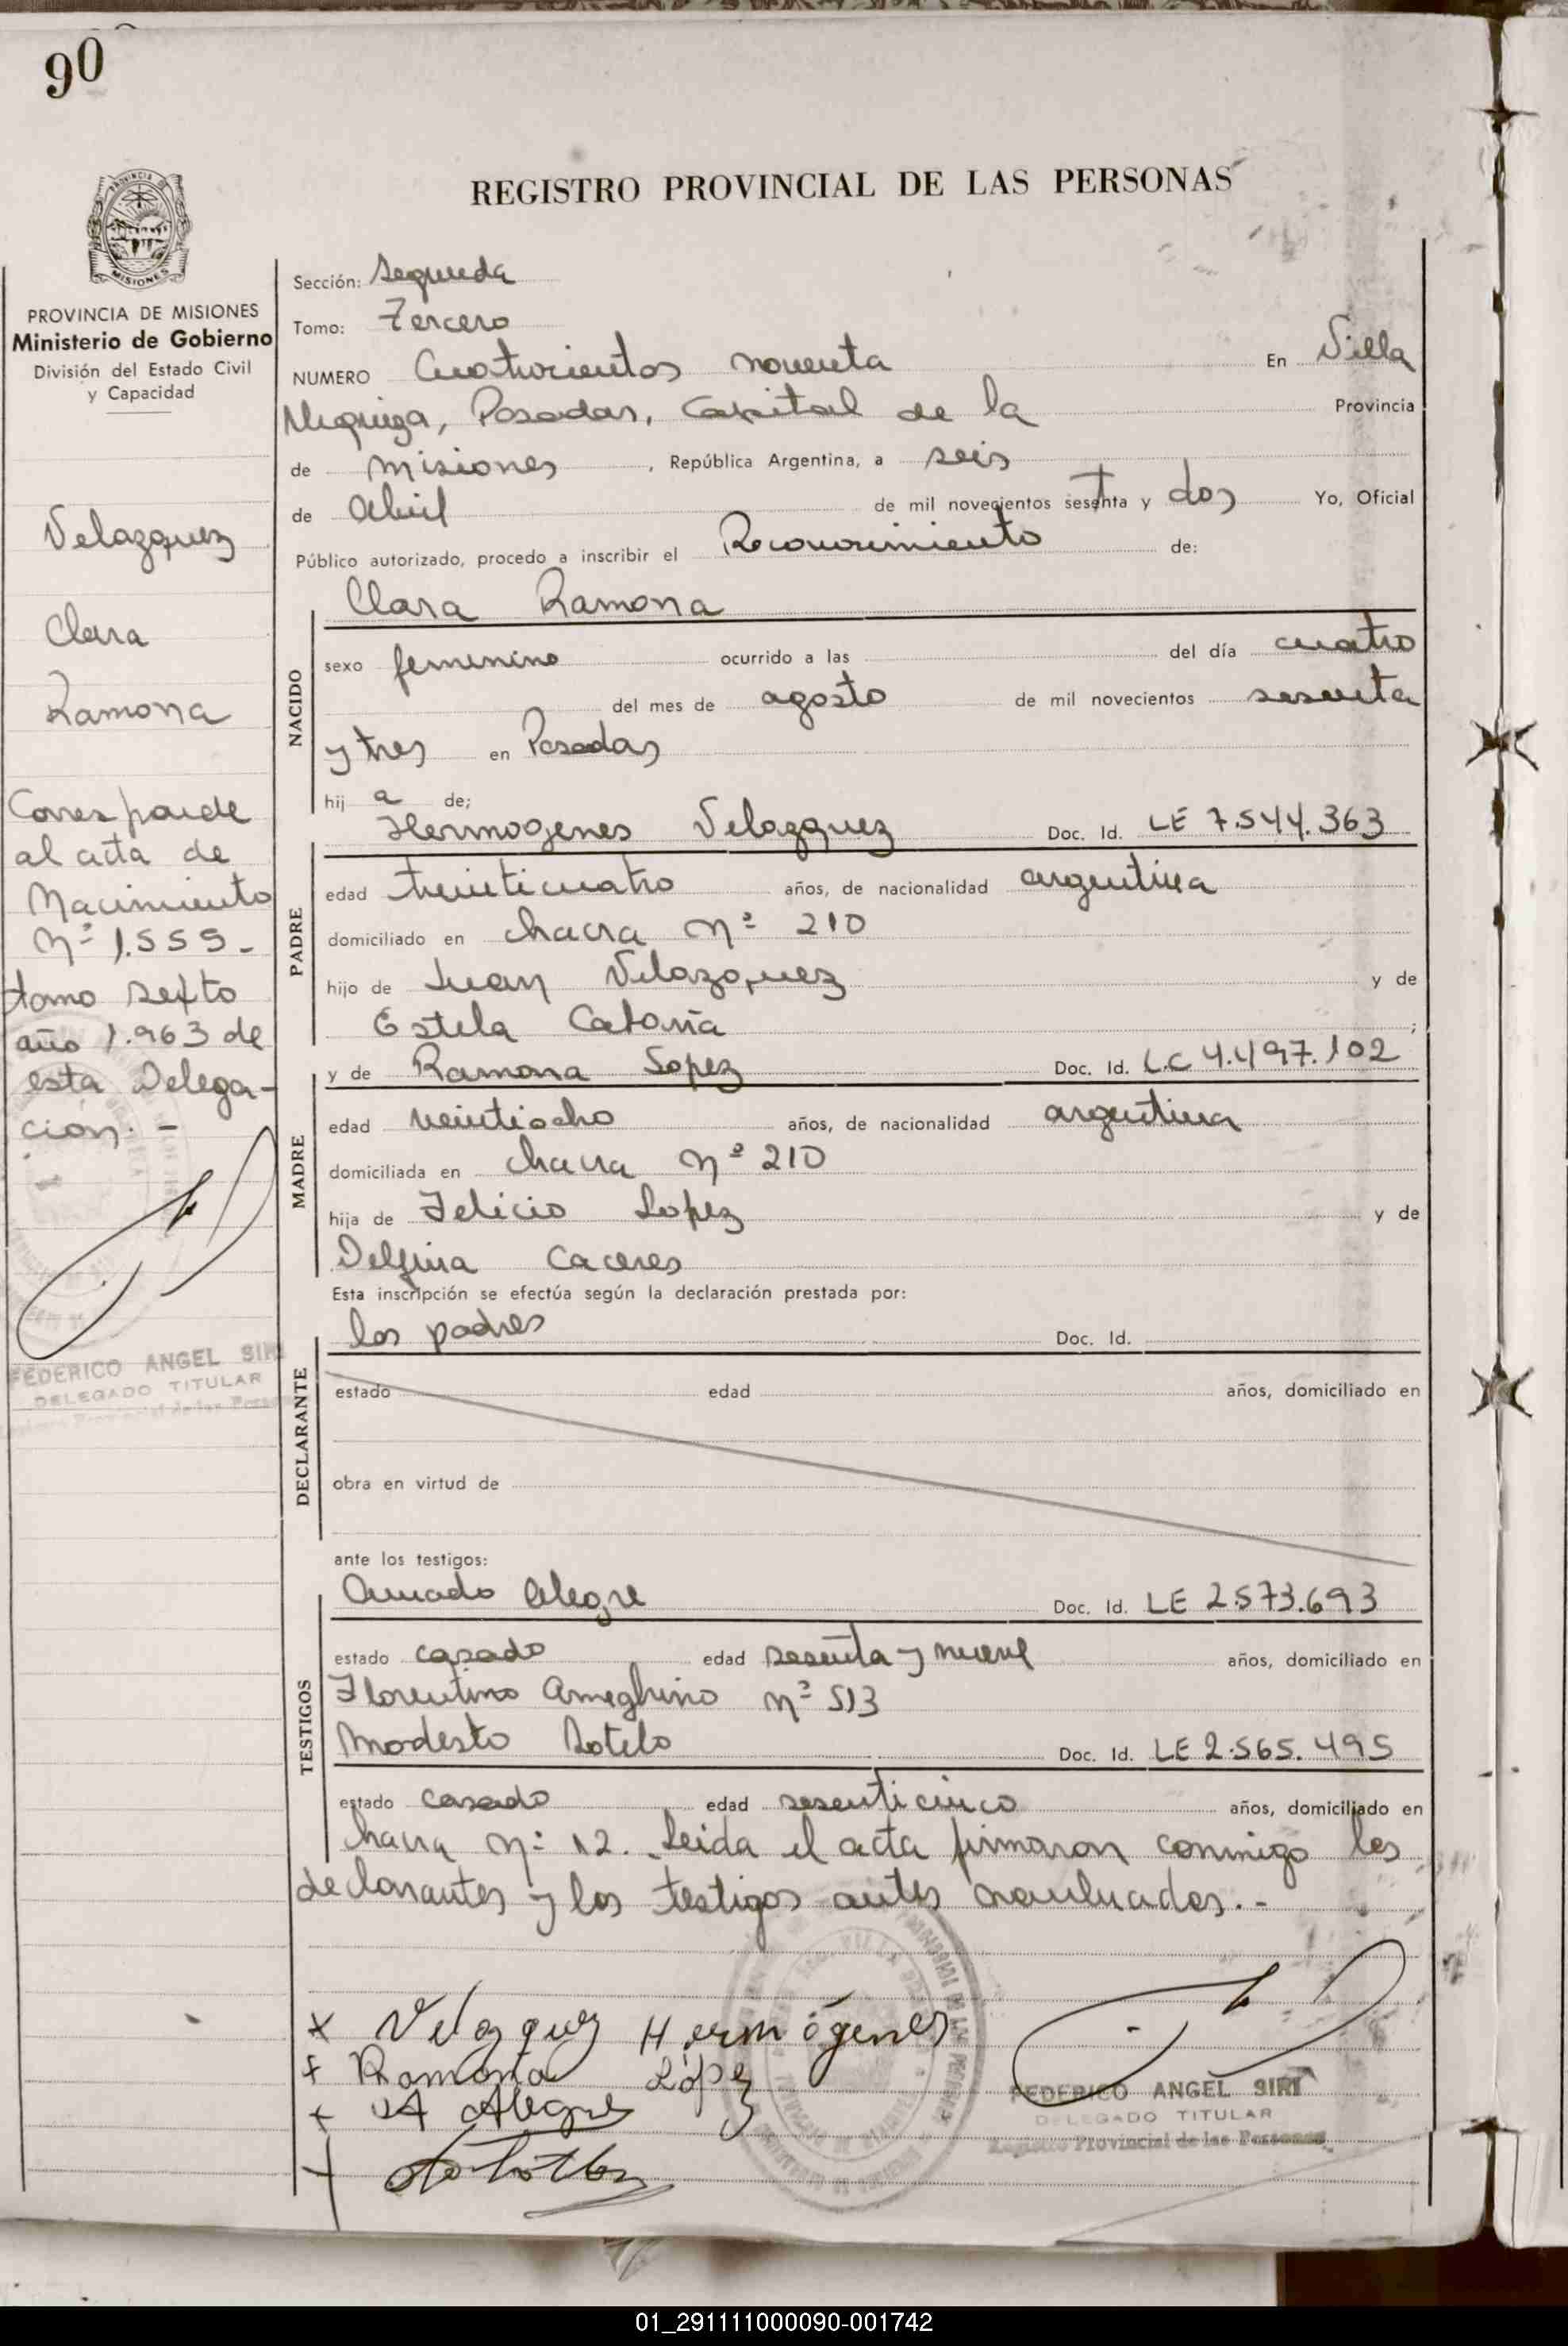 90
REGISTRO PROVINCIAL DE LAS PERSONAS
PROVINCIA DE MISIONES
Ministerio de Gobierno
División del Estado Civil
y Capacidad
Velazquez
Clara
Ramona
Corresponde
al acta de
Nacimiento
Nº 1.559-
tomo sexto
año 1.963 de
esta Delega-
ción.-
FEDERICO ANGEL SIRI
DELEGADO TITULAR
Sección: Segunda
Tomo: Tercero
NUMERO Cuatrocientos noventa En Villa
Urquiza, Posadas, Capital de la Provincia
de Misiones, República Argentina, a seis
de abril de mil novecientos sesenta y dos Yo, Oficial
Público autorizado, procedo a inscribir el Reconocimiento de:
Clara Ramona
NACIDO
sexo femenino ocurrido a las del día cuatro
del mes de agosto de mil novecientos sesenta
y tres en Posadas
hij a de;
Hermogenes Velazquez Doc. Id. LE 7.544.363
PADRE
edad treinticuatro años, de nacionalidad argentina
domiciliado en chacra Nº 210
hijo de Juan Velazquez y de
Estela ;
y de Ramona Lopez Doc. Id. L.C 4.497.102
MADRE
edad veintiocho años, de nacionalidad argentina
domiciliada en chacra Nº 210
hija de Felicio Lopez y de
Delfina Caceres
Esta inscripción se efectúa según la declaración prestada por:
los padres Doc. Id.
DECLARANTE
estado edad años, domiciliado en
obra en virtud de
ante los testigos:
Amado Alegre Doc. Id. LE 2.573.693
TESTIGOS
estado casado edad sesenta y nueve años, domiciliado en
Florentino Ameghino Nº 513
Modesto Sotelo Doc. Id. LE 2.565.495
estado casado edad sesenticinco años, domiciliado en
chacra Nº 12. Leida el acta firmaron conmigo los
declarantes y los testigos antes nombrados.-
x Velazquez Hermógenes
x Ramona López
x A Alegre
FEDERICO ANGEL SIRI
DELEGADO TITULAR
Registro Provincial de las Personas
01_291111000090-001742